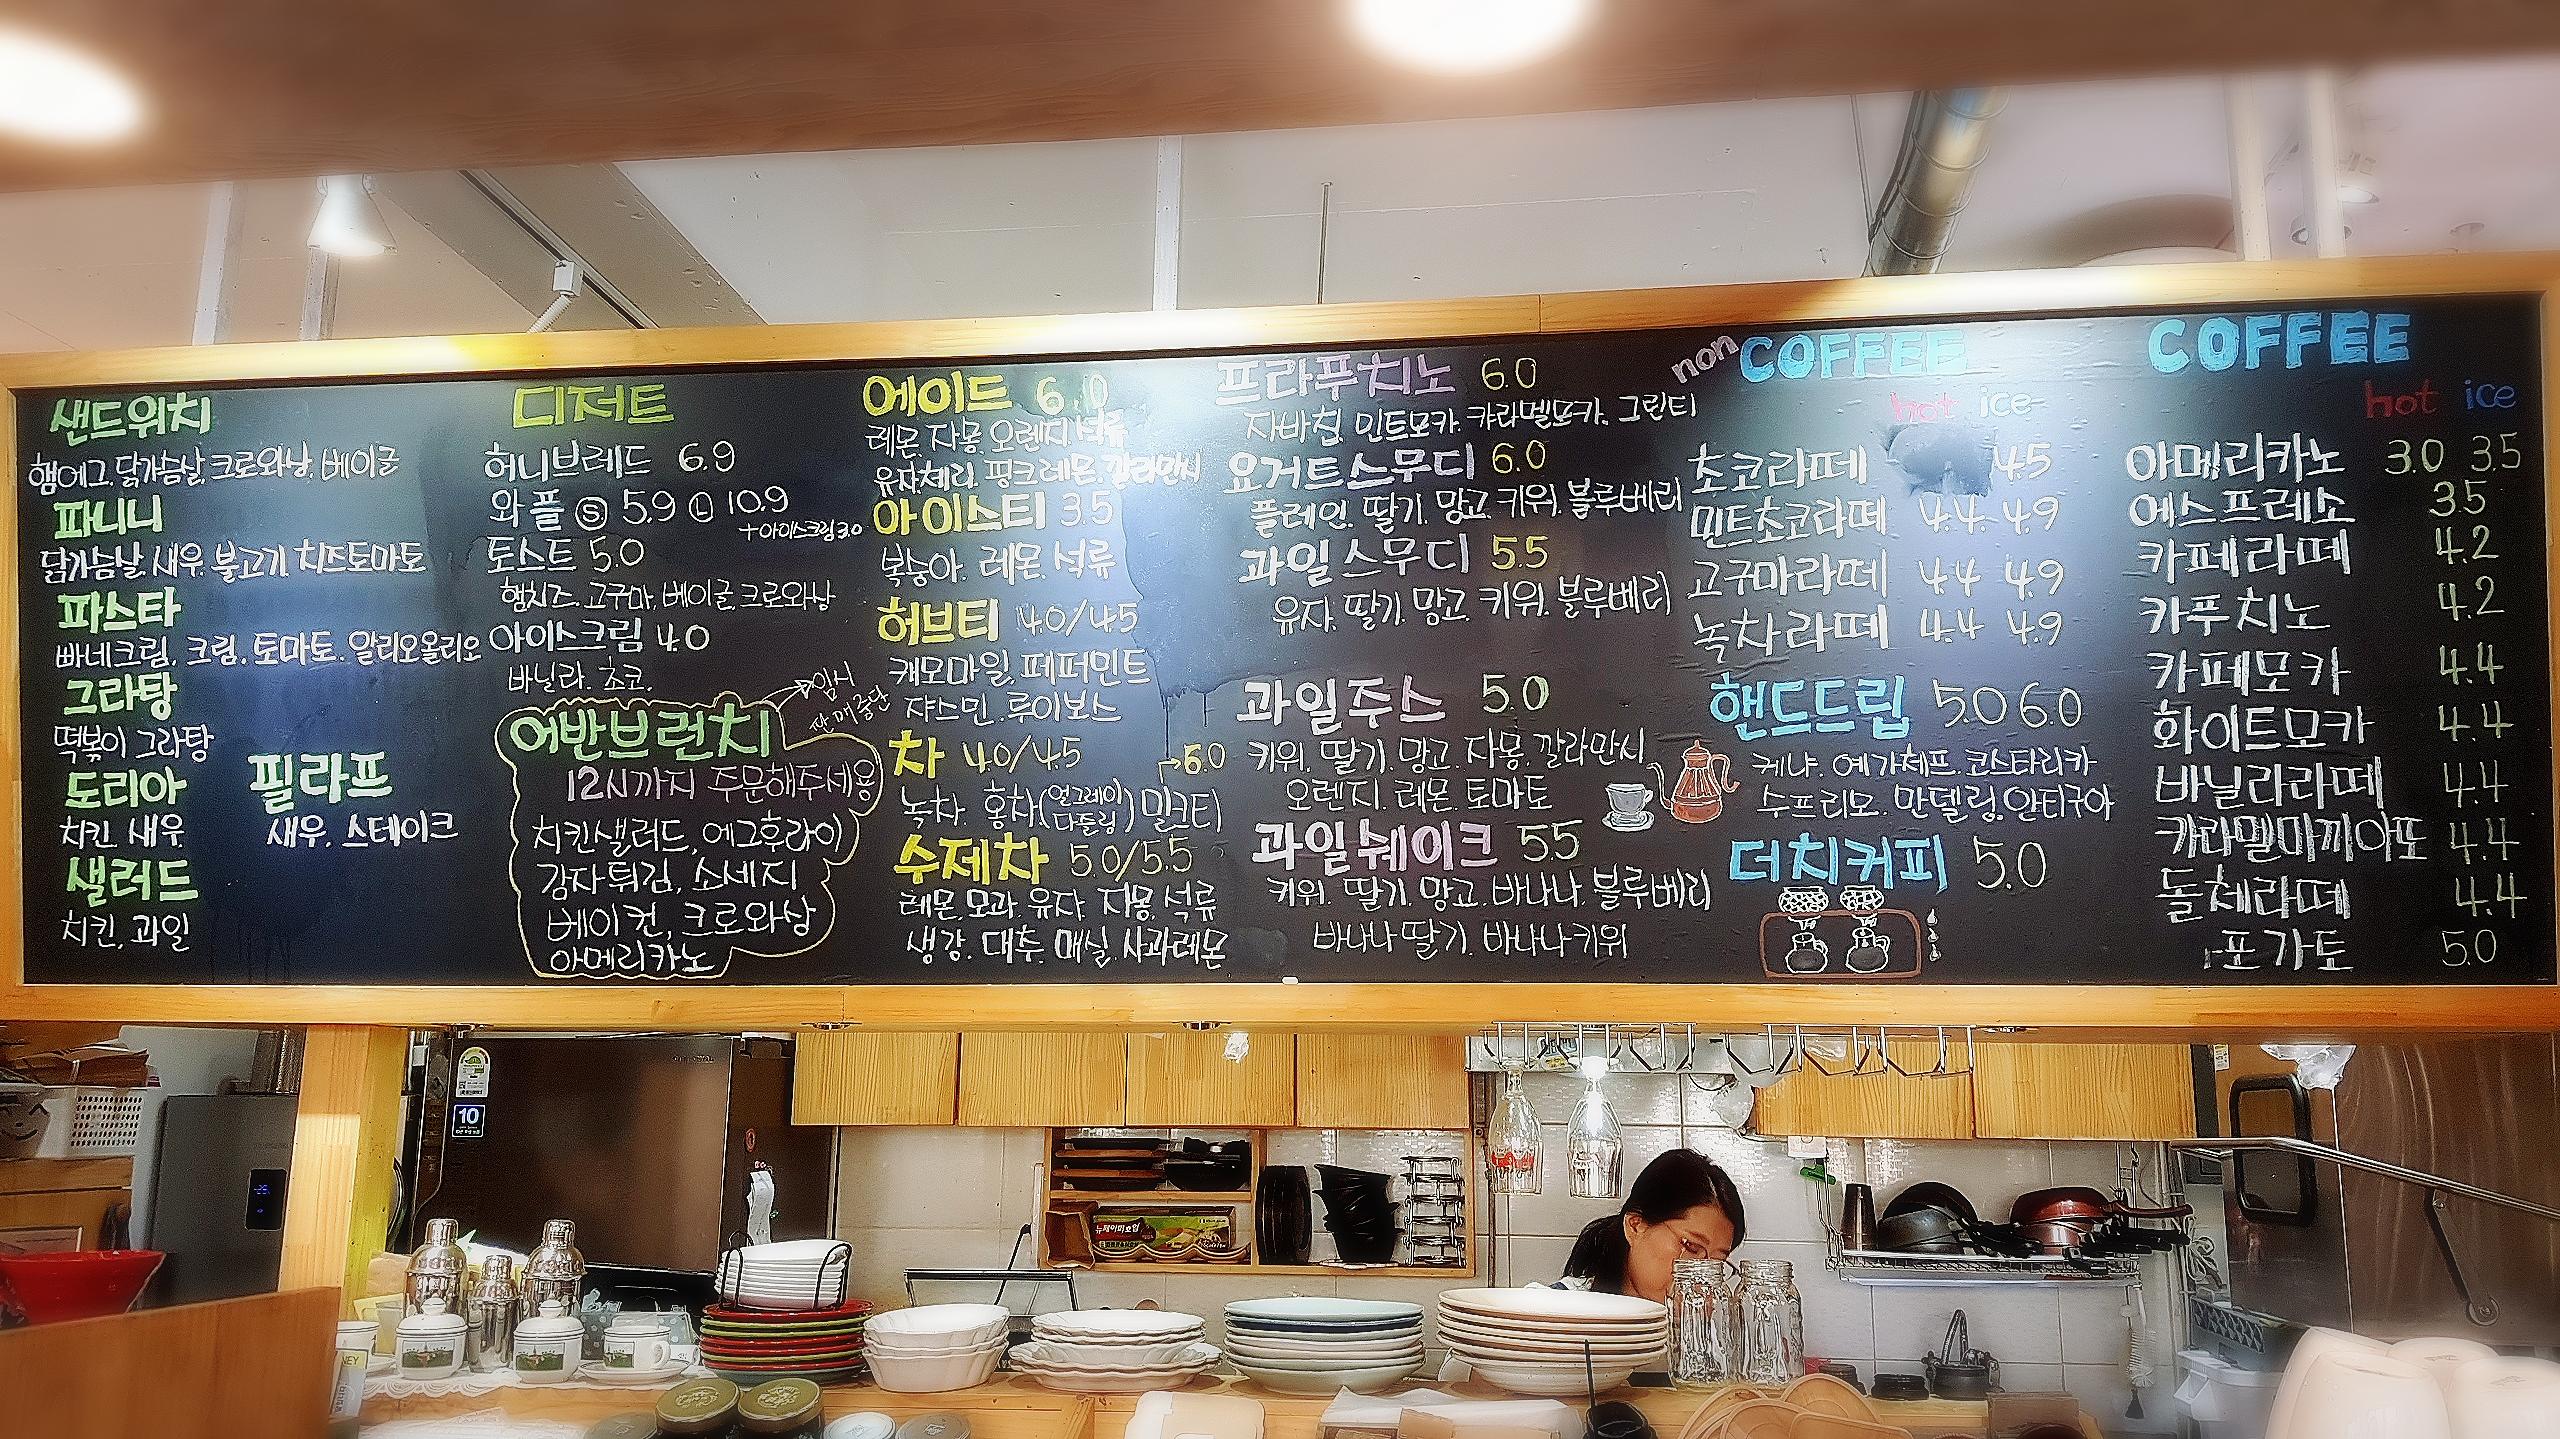 샌드위치
햄에그, 닭가슴살, 크로와상, 베이글
파니니
닭가슴살, 새우, 불고기, 치즈토마토
파스타
빠네크림, 크림, 토마토, 알리오올리오
그라탕
떡볶이 그라탕
도리아
치킨, 새우
샐러드
치킨, 과일
필라프
새우, 스테이크
디저트
허니브레드 6.9
와플 Ⓢ 5.9 Ⓛ 10.9
+아이스크림 3.0
토스트 5.0
햄치즈, 고구마, 베이글, 크로와상
아이스크림 4.0
바닐라, 초코,
임시
판매중단
어반브런치
12시까지 주문해주세용
치킨샐러드, 에그후라이
감자튀김, 소세지
베이컨, 크로와상
아메리카노
에이드 6.0
레몬, 자몽, 오렌지, 석류
유자, 체리, 핑크레몬, 깔라만시
아이스티 3.5
복숭아, 레몬, 석류
허브티 4.0/4.5
캐모마일, 페퍼민트
쟈스민, 루이보스
차 4.0/4.5
→6.0
녹차, 홍차(얼그레이 다즐링) 밀크티
수제차 5.0/5.5
레몬, 모과, 유자, 자몽, 석류
생강, 대추, 매실, 사과레몬
프라푸치노 6.0
자바칩, 민트모카, 캬라멜모카, 그린티
요거트스무디 6.0
플레인, 딸기, 망고, 키위, 블루베리
과일스무디 5.5
유자, 딸기, 망고, 키위, 블루베리
과일주스 5.0
키위, 딸기, 망고, 자몽, 깔라만시
오렌지, 레몬, 토마토
과일쉐이크 5.5
키위, 딸기, 망고, 바나나, 블루베리
바나나딸기, 바나나키위
non COFFEE
hot ice
초코라떼 4.5
민트초코라떼 4.4 4.9
고구마라떼 4.4 4.9
녹차라떼 4.4 4.9
핸드드립 5.0 6.0
케냐, 예가체프, 코스타리카
수프리모, 만델링, 안티구아
더치커피 5.0
COFFEE
hot ice
아메리카노 3.0 3.5
에스프레소 3.5
카페라떼 4.2
카푸치노 4.2
카페모카 4.4
화이트모카 4.4
바닐라라떼 4.4
캬라멜마끼아또 4.4
돌체라떼 4.4
포가토 5.0
10